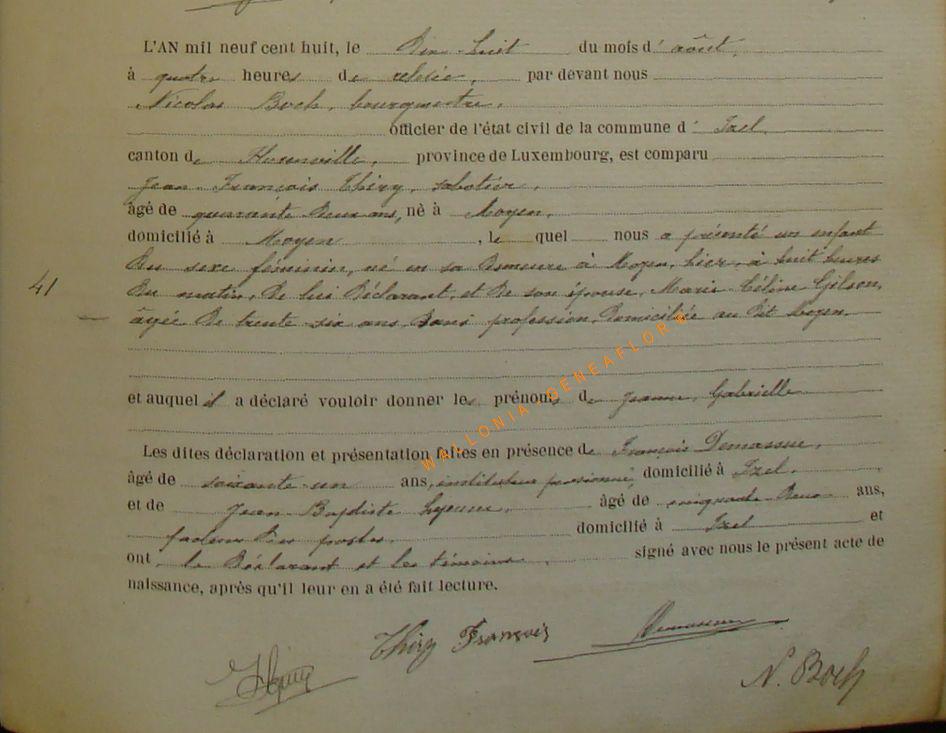 L'AN mil neuf cent huit, le Dix-huit du mois d' août,
à quatre heures de relevée, par devant nous
Nicolas Boch, bourgmestre,
officier de l'état civil de la commune d' Izel
canton de Florenville, province de Luxembourg, est comparu
Jean François Thiry, sabotier,
âgé de quarante deux ans, né à Moyen,
domicilié à Moyen, le quel nous a présenté un enfant
du sexe féminin, né en sa demeure à Moyen, hier, à huit heures
41
du matin, de lui déclarant, et de son épouse, Marie Céline Gilson,
âgée de trente-six ans, sans profession, domiciliée au dit Moyen.
et auquel il a déclaré vouloir donner les prénoms de Jeanne, Gabrielle
Les dites déclaration et présentation faites en présence de François Demasure,
âgé de soixante un ans, instituteur pensionné, domicilié à Izel.
et de Jean Baptiste Lejeune, âgé de cinquante deux ans,
facteur des postes, domicilié à Izel et
ont, le déclarant et les témoins, signé avec nous le présent acte de
naissance, après qu'il leur en a été fait lecture.
Thiry François
N. Boch
WALLONIA-GENEAFLORE